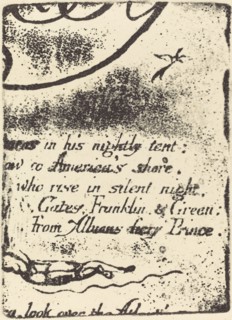 in his nightly tent:
to America's shore.
who rise in silent night,
Gates, Franklin & Green;
from Albions fiery Prince.
look over the